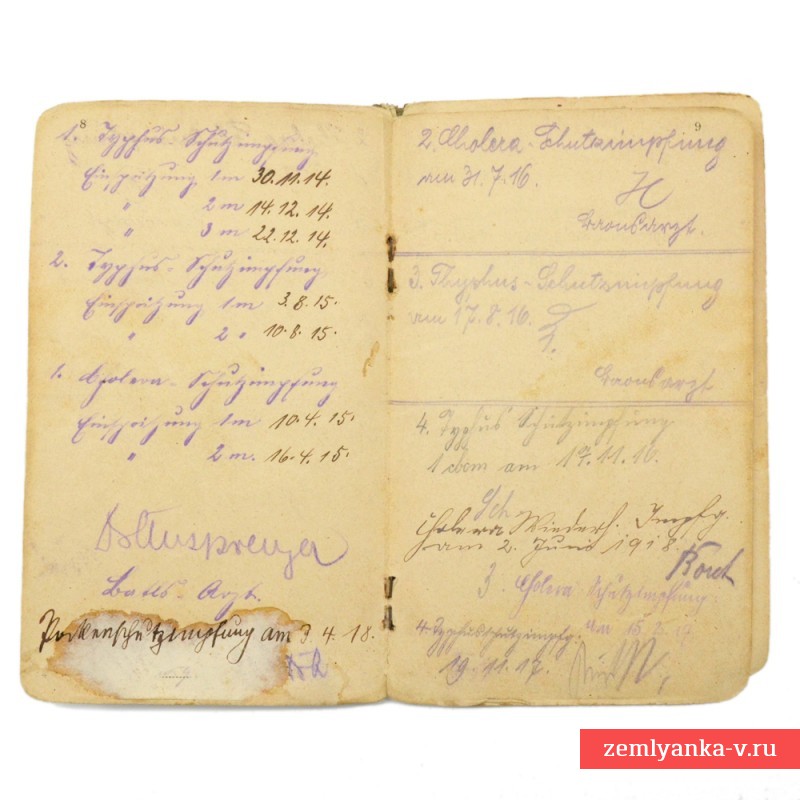 8
1. Typhus-Schutzimpfung
Einspritzung 1 m 30.11.14.
" 2 m 14.12.14.
" 3 m 22.12.14.
2. Typhus-Schutzimpfung
Einspritzung 1 m 3.8.15.
" 2 " 10.8.15.
1. Cholera-Schutzimpfung
Einspritzung 1 m 10.4.15.
" 2 m. 16.4.15.
Batls. Arzt.
Pockenschutzimpfung am 3.4.18.
9
2. Cholera-Schutzimpfung
am 31.7.16.
Baonsarzt.
3. Thyphus-Schutzimpfung
am 17.8.16.
Baonsarzt
4. Typhus Schutzimpfung
1 cbcm am 17.11.16.
Sch
Cholera Wiederh. Impfg.
am 2. Juni 1918.
3. Cholera Schutzimpfung.
4. Typhusschutzimpfg. am
19.11.17.
zemlyanka-v.ru